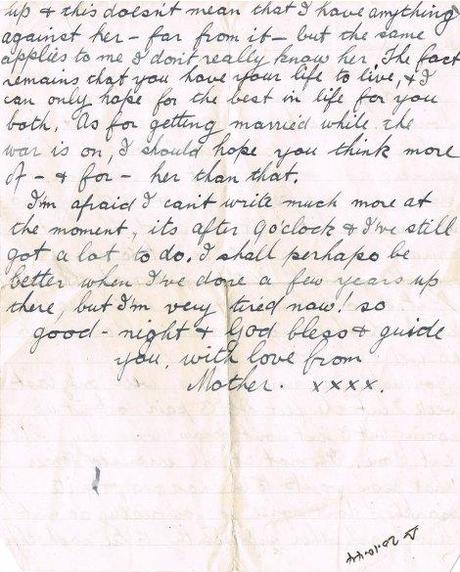 up & this doesn't mean that I have anything
against her - far from it - but the same
applies to me I don't really know her. The fact
remains that you have your life to live, & I
can only hope for the best in life for you
both. As for getting married while the
war is on, I should hope you think more
of - & for - her than that.
I'm afraid I can't write much more at
the moment, its after 9 o'clock & I've still
got a lot to do. I shall perhaps be
better when I've done a few years up
there, but I'm very tired now! so
good-night & God bless & guide
you, with love from
Mother. xxxx.